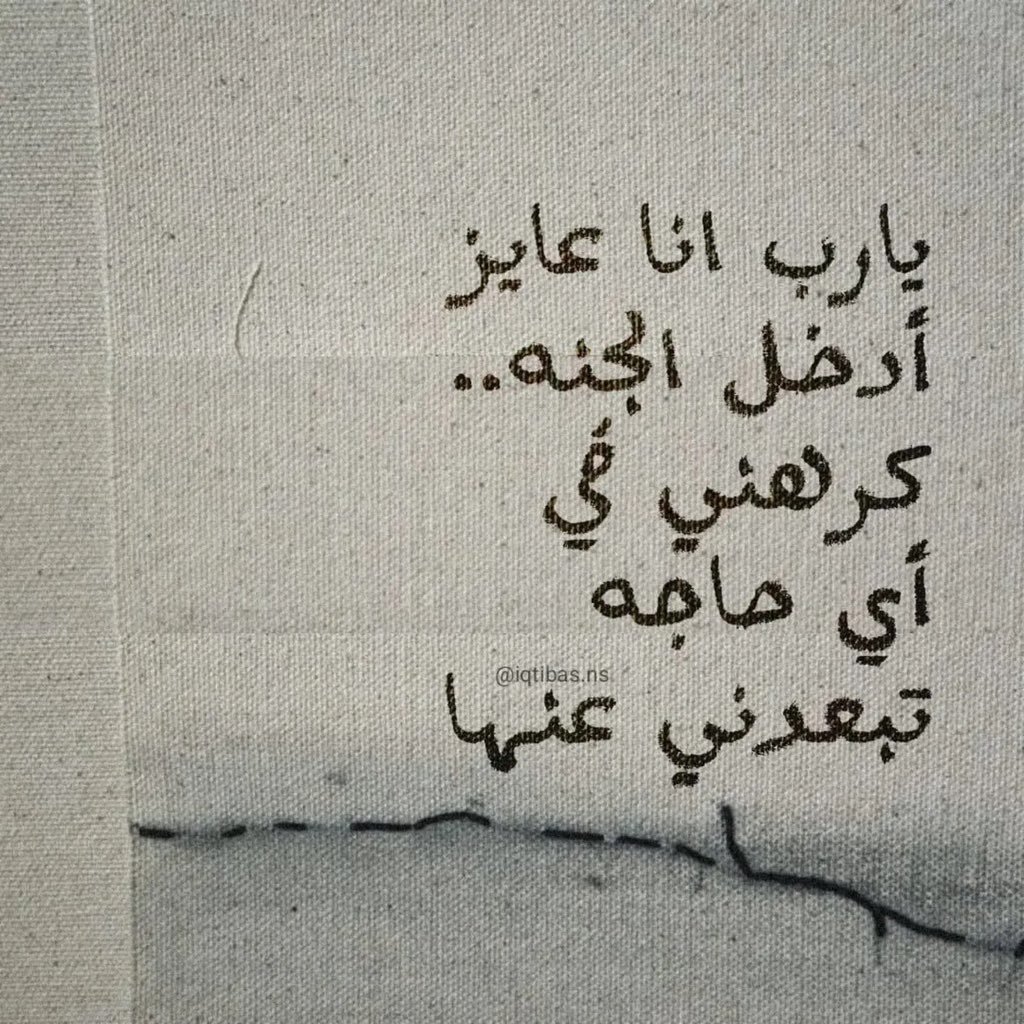 يارب انا عايز
أدخل الجنه..
كرهني في
أي حاجه
@iqtibas.ns
تبعدني عنها